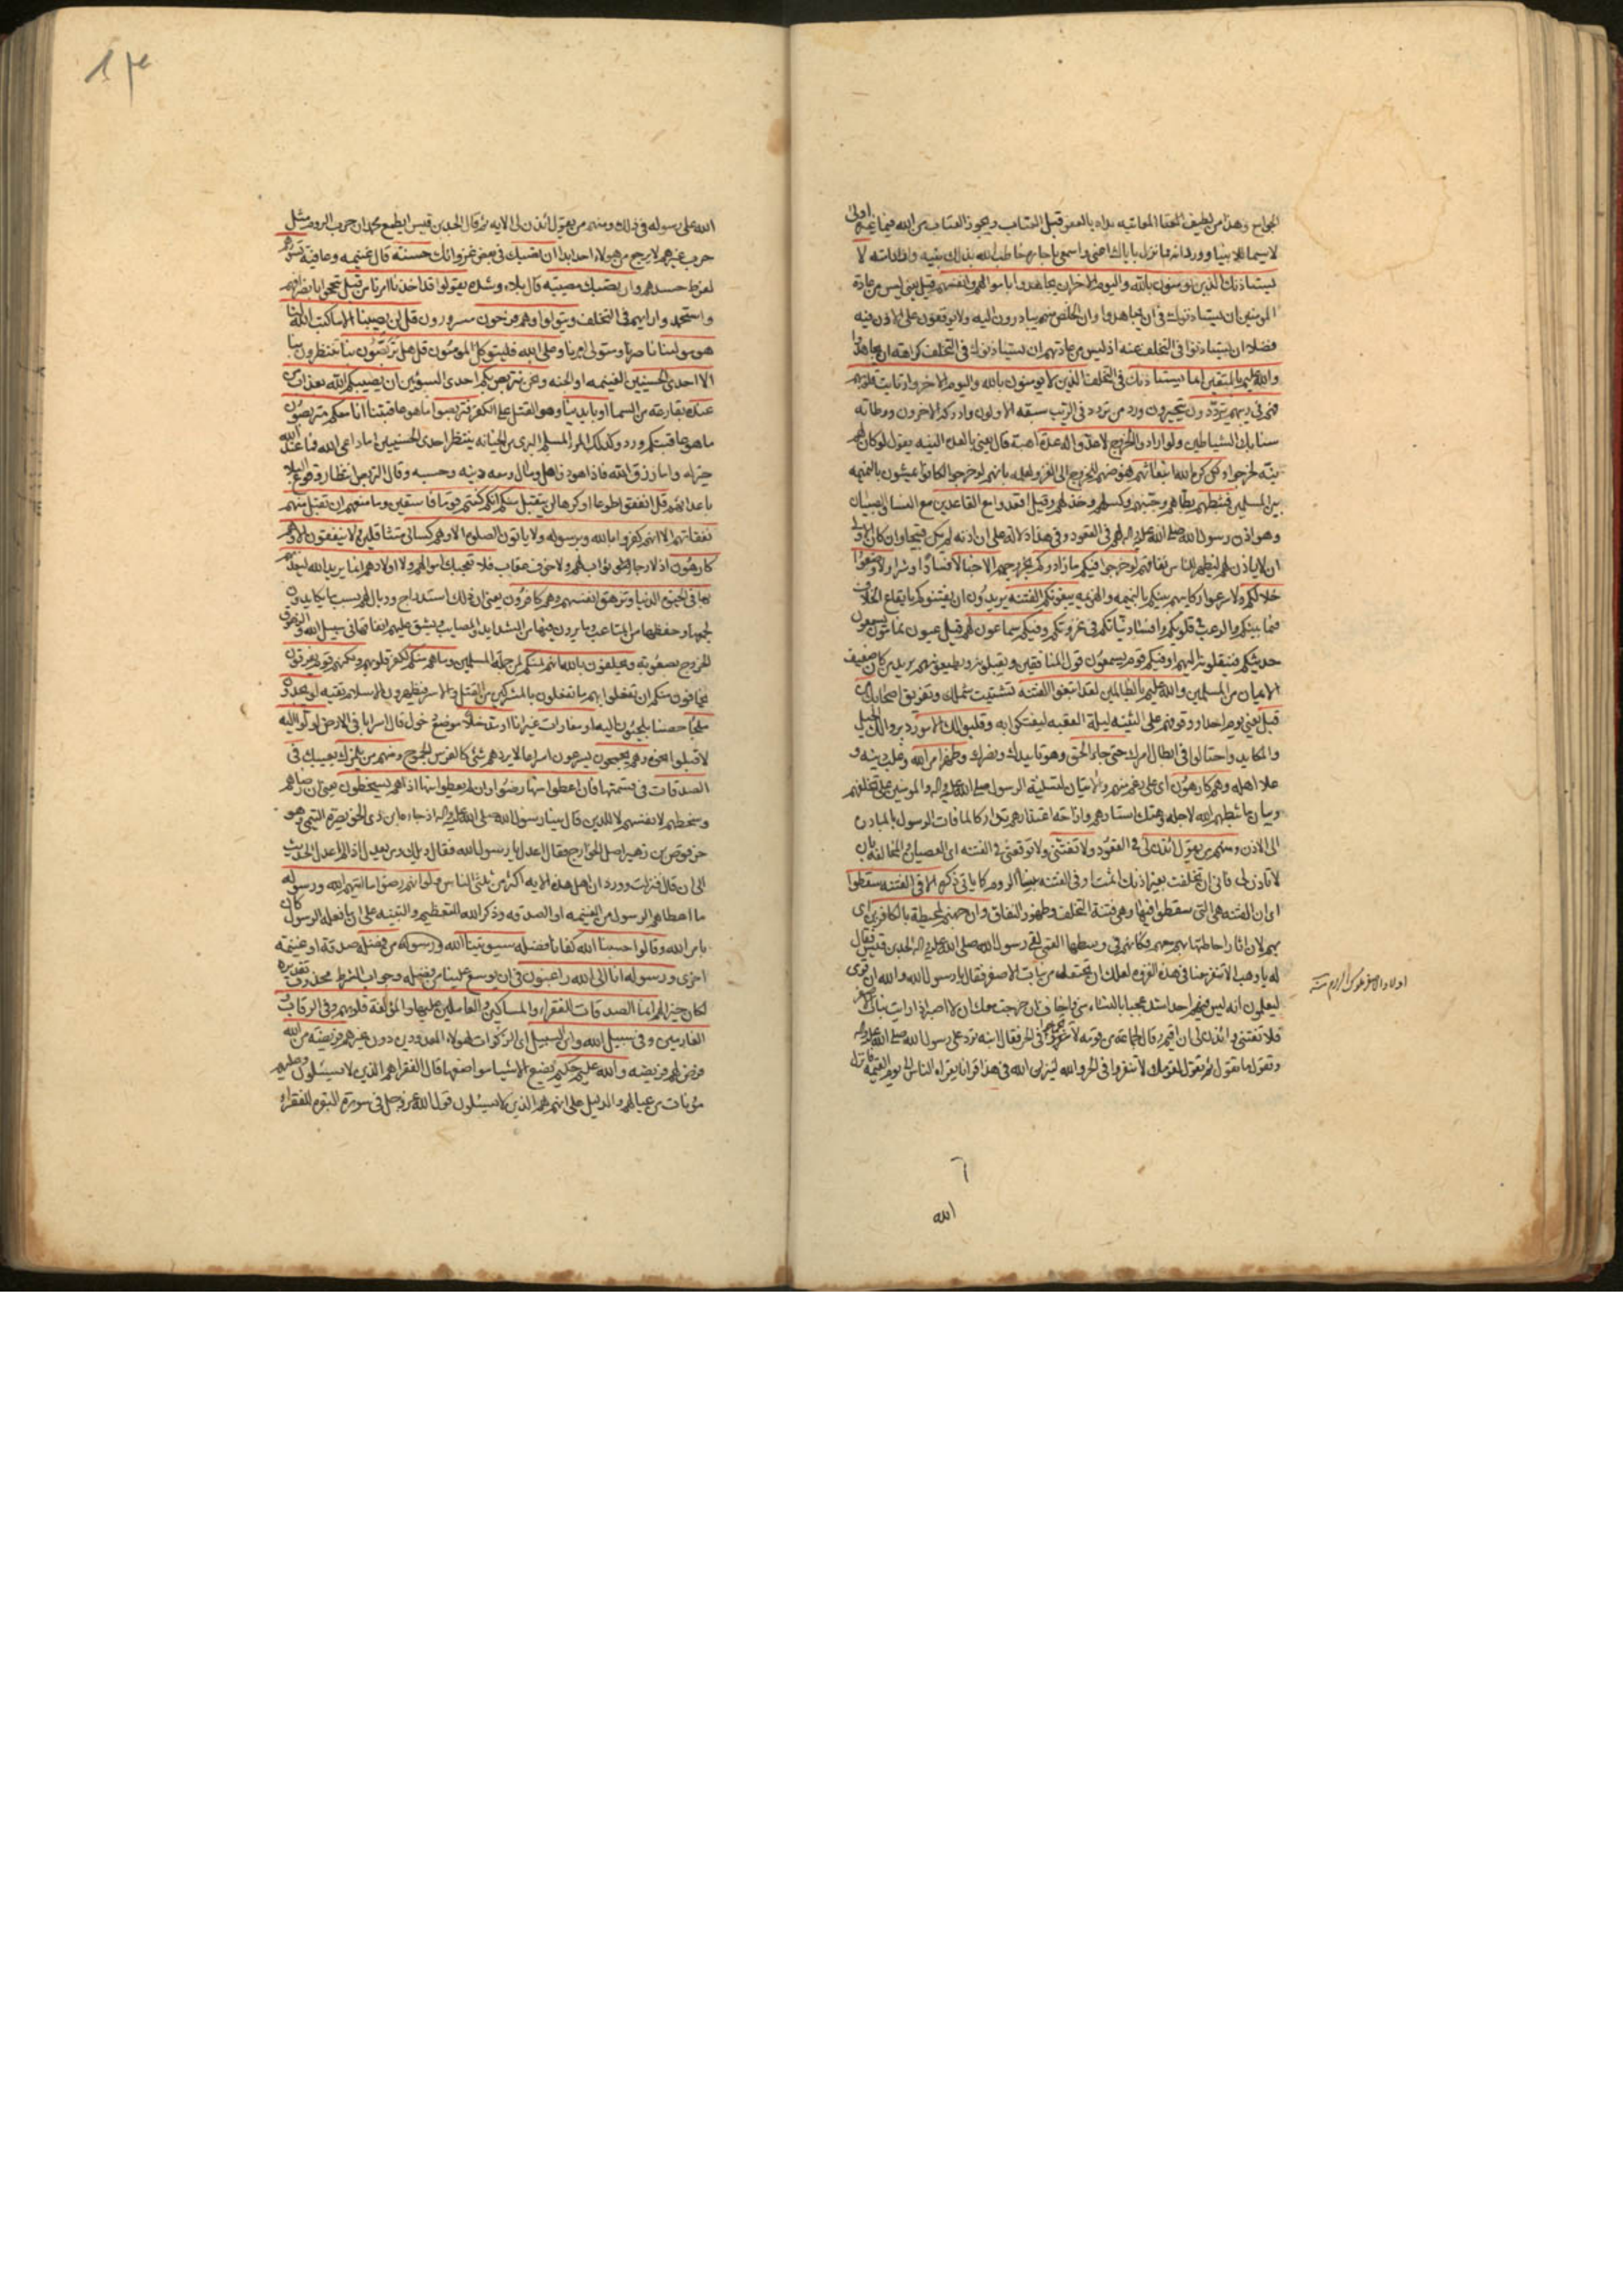 الجوامع وهذا من لطيف المعاتبه بداه بالعفو قبل العتاب ويجوز العتاب من الله فيما غيره اولى
لا سيما للانبيا وورد انه مما نزل باياك اعنى واسمعى يا جاره خاطب الله بذلك نبيه واراد امته لا
يستاذنك الذين يومنون بالله واليوم الاخر ان يجاهدوا باموالهم وانفسهم قيل يعنى ليس من عادة
المومنين ان يستاذنوك فى ان يجاهدوا وان الخلص منهم يبادرون اليه ولا يوقفون على الاذن فيه
فضلا ان يستاذنوا فى التخلف عنه او ليس من عادتهم ان يستاذنوك فى التخلف كراهة ان يجاهدوا
والله عليم بالمتقين انما يستاذنك فى التخلف الذين لا يومنون بالله واليوم الاخر وارتابت قلوبهم
فهم فى ريبهم يترددون يتحيرون ورد من تردد فى الريب سبقه الاولون وادركه الاخرون ووطاته
سنابك الشياطين ولو ارادوا الخروج لاعدوا له عدة اهبة قال يعنى بالعدة النيه يقول لو كان لهم
نيه لخرجوا ولكن كره الله انبعاثهم نهوضهم للخروج الى الغزو لعلمه بانهم لو خرجوا لكانوا يمشون بالنميمه
بين المسلمين فثبطهم بطاهم وجبنهم وكسلهم وخذلهم وقيل اقعدوا مع القاعدين مع النسا والصبيان
وهو اذن رسول الله صلى الله عليه واله لهم فى القعود وفى هذا دلالة على ان اذنه لم يكن قبيحا وان كان الاولى
ان لا ياذن لهم ليظهر للناس نفاقهم لو خرجوا فيكم ما زادوكم بخروجهم الا خبالا فسادا وشرا ولاوضعوا
خلالكم ولاسرعوا ركايبهم بينكم بالنميمه والهزيمه يبغونكم الفتنه يريدون ان يفتنوكم بايقاع الخلاف
فيما بينكم والرعب فى قلوبكم وافساد نياتكم فى غزوتكم وفيكم سماعون لهم قيل عيون نمامون يسمعون
حديثكم فينقلونه اليهم او فيكم قوم يسمعون قول المنافقين ويقبلونه ويطيعونهم يريد من كان ضعيف
الايمان من المسلمين والله عليم بالظالمين لقد ابتغوا الفتنه تشتيت شملك وتفريق اصحابك من
قبل يعنى يوم احد او وقوفهم على الثنيه ليلة العقبه ليفتكوا به وقلبوا لك الامور دبروا لك الحيل
والمكايد واحتالوا فى ابطال امرك حتى جاء الحق وهو تاييدك ونصرك وظهر امر الله وغلب دينه و
علا اهله وهم كارهون اى على رغم منهم والايتان لتسلية الرسول صلى الله عليه واله والمومنين على تخلفهم
وبيان ما ثبطهم الله لاجله وهتك استارهم وازاحة اعتذارهم تداركا لما فات الرسول بالمبادرة
الى الاذن ومنهم من يقول ائذن لى فى القعود ولا تفتنى ولا توقعنى فى الفتنه اى العصيان والمخالفه بان
لا تاذن لى فانى ان تخلفت بغير اذنك اثمت او فى الفتنه بنسا الروم كما ياتى ذكره الا فى الفتنه سقطوا
اى ان الفتنه هى التى سقطوا فيها وهى فتنة التخلف وظهور النفاق وان جهنم لمحيطة بالكافرين اى
بهم لان اثار احاطتها بهم معهم فكانهم فى وسطها القمى لقى رسول الله صلى الله عليه واله الجد بن قيس فقال
له يا ابا وهب الا تنفر معنا فى هذه الغزوه لعلك ان تحتفد من بنات الاصفر فقال يا رسول الله والله ان قومى
ليعلمون انه ليس فيهم احد اشد عجبا بالنساء منى واخاف ان خرجت معك ان لا اصبر اذا رايت بنات الاصفر
فلا تفتنى وائذن لى ان اقيم وقال لجماعة من قومه لا تخرجوا فى الحر فقال ابنه ترد على رسول الله صلى الله عليه واله
وتقول ما تقول ثم تقول لقومك لا تنفروا فى الحر والله لينزلن الله فى هذا قرانا يقراه الناس الى يوم القيمه فانزل
الله
الله على رسوله فى ذلك ومنهم من يقول ائذن لى الايه ثم قال الجد بن قيس ايطمع محمد ان حرب الروم مثل
حرب غيرهم لا يرجع من هولاء احد ابدا ان تصبك فى بعض غزواتك حسنة قال غنيمه وعافية تسؤهم
لفرط حسدهم وان تصبك مصيبه قال بلاء وشده يقولوا قد اخذنا امرنا من قبل
ويتولوا وهم فرحون مسرورون قل لن يصيبنا الا ما كتب الله لنا
هو مولينا ناصرنا ومتولى امرنا وعلى الله فليتوكل المومنون قل هل تربصون بنا تنتظرون بنا
الا احدى الحسنيين الغنيمه او الجنه ونحن نتربص بكم احدى السوئين ان يصيبكم الله بعذاب من
عنده بقارعة من السما او بايدينا وهو القتل على الكفر فتربصوا ما هو عاقبتنا انا معكم متربصون
ما هو عاقبتكم ورد وكذلك المرء المسلم البرى من الخيانه ينتظر احدى الحسنيين اما داعى الله فما عند الله
خير له واما رزق الله فاذا هو ذو اهل ومال ومعه دينه وحسبه
قل انفقوا طوعا او كرها لن يتقبل منكم انكم كنتم قوما فاسقين وما منعهم ان تقبل منهم
نفقاتهم الا انهم كفروا بالله وبرسوله ولا ياتون الصلوة الا وهم كسالى متثاقلين ولا ينفقون الا وهم
كارهون اذ لا يرجون ثوابا لهم ولا خوف عقاب فلا تعجبك اموالهم ولا اولادهم انما يريد الله ليعذبهم
بها فى الحيوة الدنيا وتزهق انفسهم وهم كافرون يعنى ان ذلك استدراج ووبال لهم بسبب ما يكابدون
لجمعها وحفظها من المتاعب وما يرون فيها من الشدايد والمصايب ويشق عليهم انفاقها فى سبيل الله وتزهق
للخروج بصعوبة ويحلفون بالله انهم لمنكم لمن جملة المسلمين وما هم منكم لكفر قلوبهم ولكنهم قوم يفرقون
يخافون منكم ان تفعلوا بهم ما تفعلون بالمشركين من القتل والاسر فيظهرون الاسلام تقيه لو يجدون
ملجا حصنا يلجئون اليه او مغارات غيرانا او مدخلا موضع دخول قال اسرابا فى الارض لولوا اليه
لاقبلوا نحوه وهم يجمحون يسرعون اسراعا لا يردهم شئ كالفرس الجموح ومنهم من يلمزك يعيبك فى
الصدقات فى قسمتها فان اعطوا منها رضوا وان لم يعطوا منها اذا هم يسخطون يعنى ان رضاهم
وسخطهم لانفسهم لا للدين قال بينا رسول الله صلى الله عليه واله اذ جاءه ابن ذى الخويصرة التيمى وهو
حرقوص بن زهير اصل الخوارج فقال اعدل يا رسول الله فقال ويلك ومن يعدل اذا لم اعدل الحديث
الى ان قال فنزلت وورد ان اهل هذه الايه اكثر من ثلثى الناس ولو انهم رضوا ما اتيهم الله ورسوله
ما اعطاهم الرسول من الغنيمه او الصدقه وذكر الله للتعظيم والتنبيه على ان ما فعله الرسول كان
بامر الله وقالوا حسبنا الله كفانا فضله سيوتينا الله ورسوله من فضله صدقة او غنيمة
اخرى ورسوله انا الى الله راغبون فى ان يوسع علينا من فضله وجواب الشرط محذوف تقديره
لكان خيرا لهم انما الصدقات للفقراء والمساكين والعاملين عليها والمؤلفة قلوبهم وفى الرقاب و
الغارمين وفى سبيل الله وابن السبيل اى الزكوات لهولاء المعدودين دون غيرهم فريضة من الله
فرض لهم فريضه والله عليم حكيم يضع الاشيا مواضعها قال الفقرا هم الذين لا يسئلون وعليهم
مؤنات من عيالهم والدليل على انهم هم الذين لا يسئلون قول الله عز وجل فى سورة البقره للفقراء